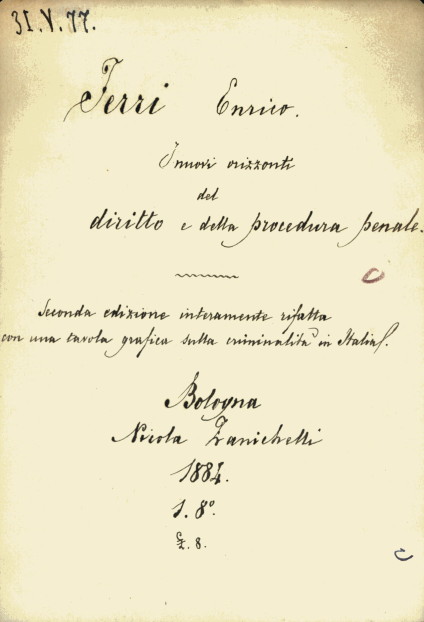 31.V.77.
Ferri Enrico.
I nuovi orizzonti
del
diritto e della procedura penale.
Seconda edizione interamente rifatta
con una tavola grafica sulla criminalità in Italia.
Bologna
Nicola Zanichelli
1884.
1. 8º.
£. 8.